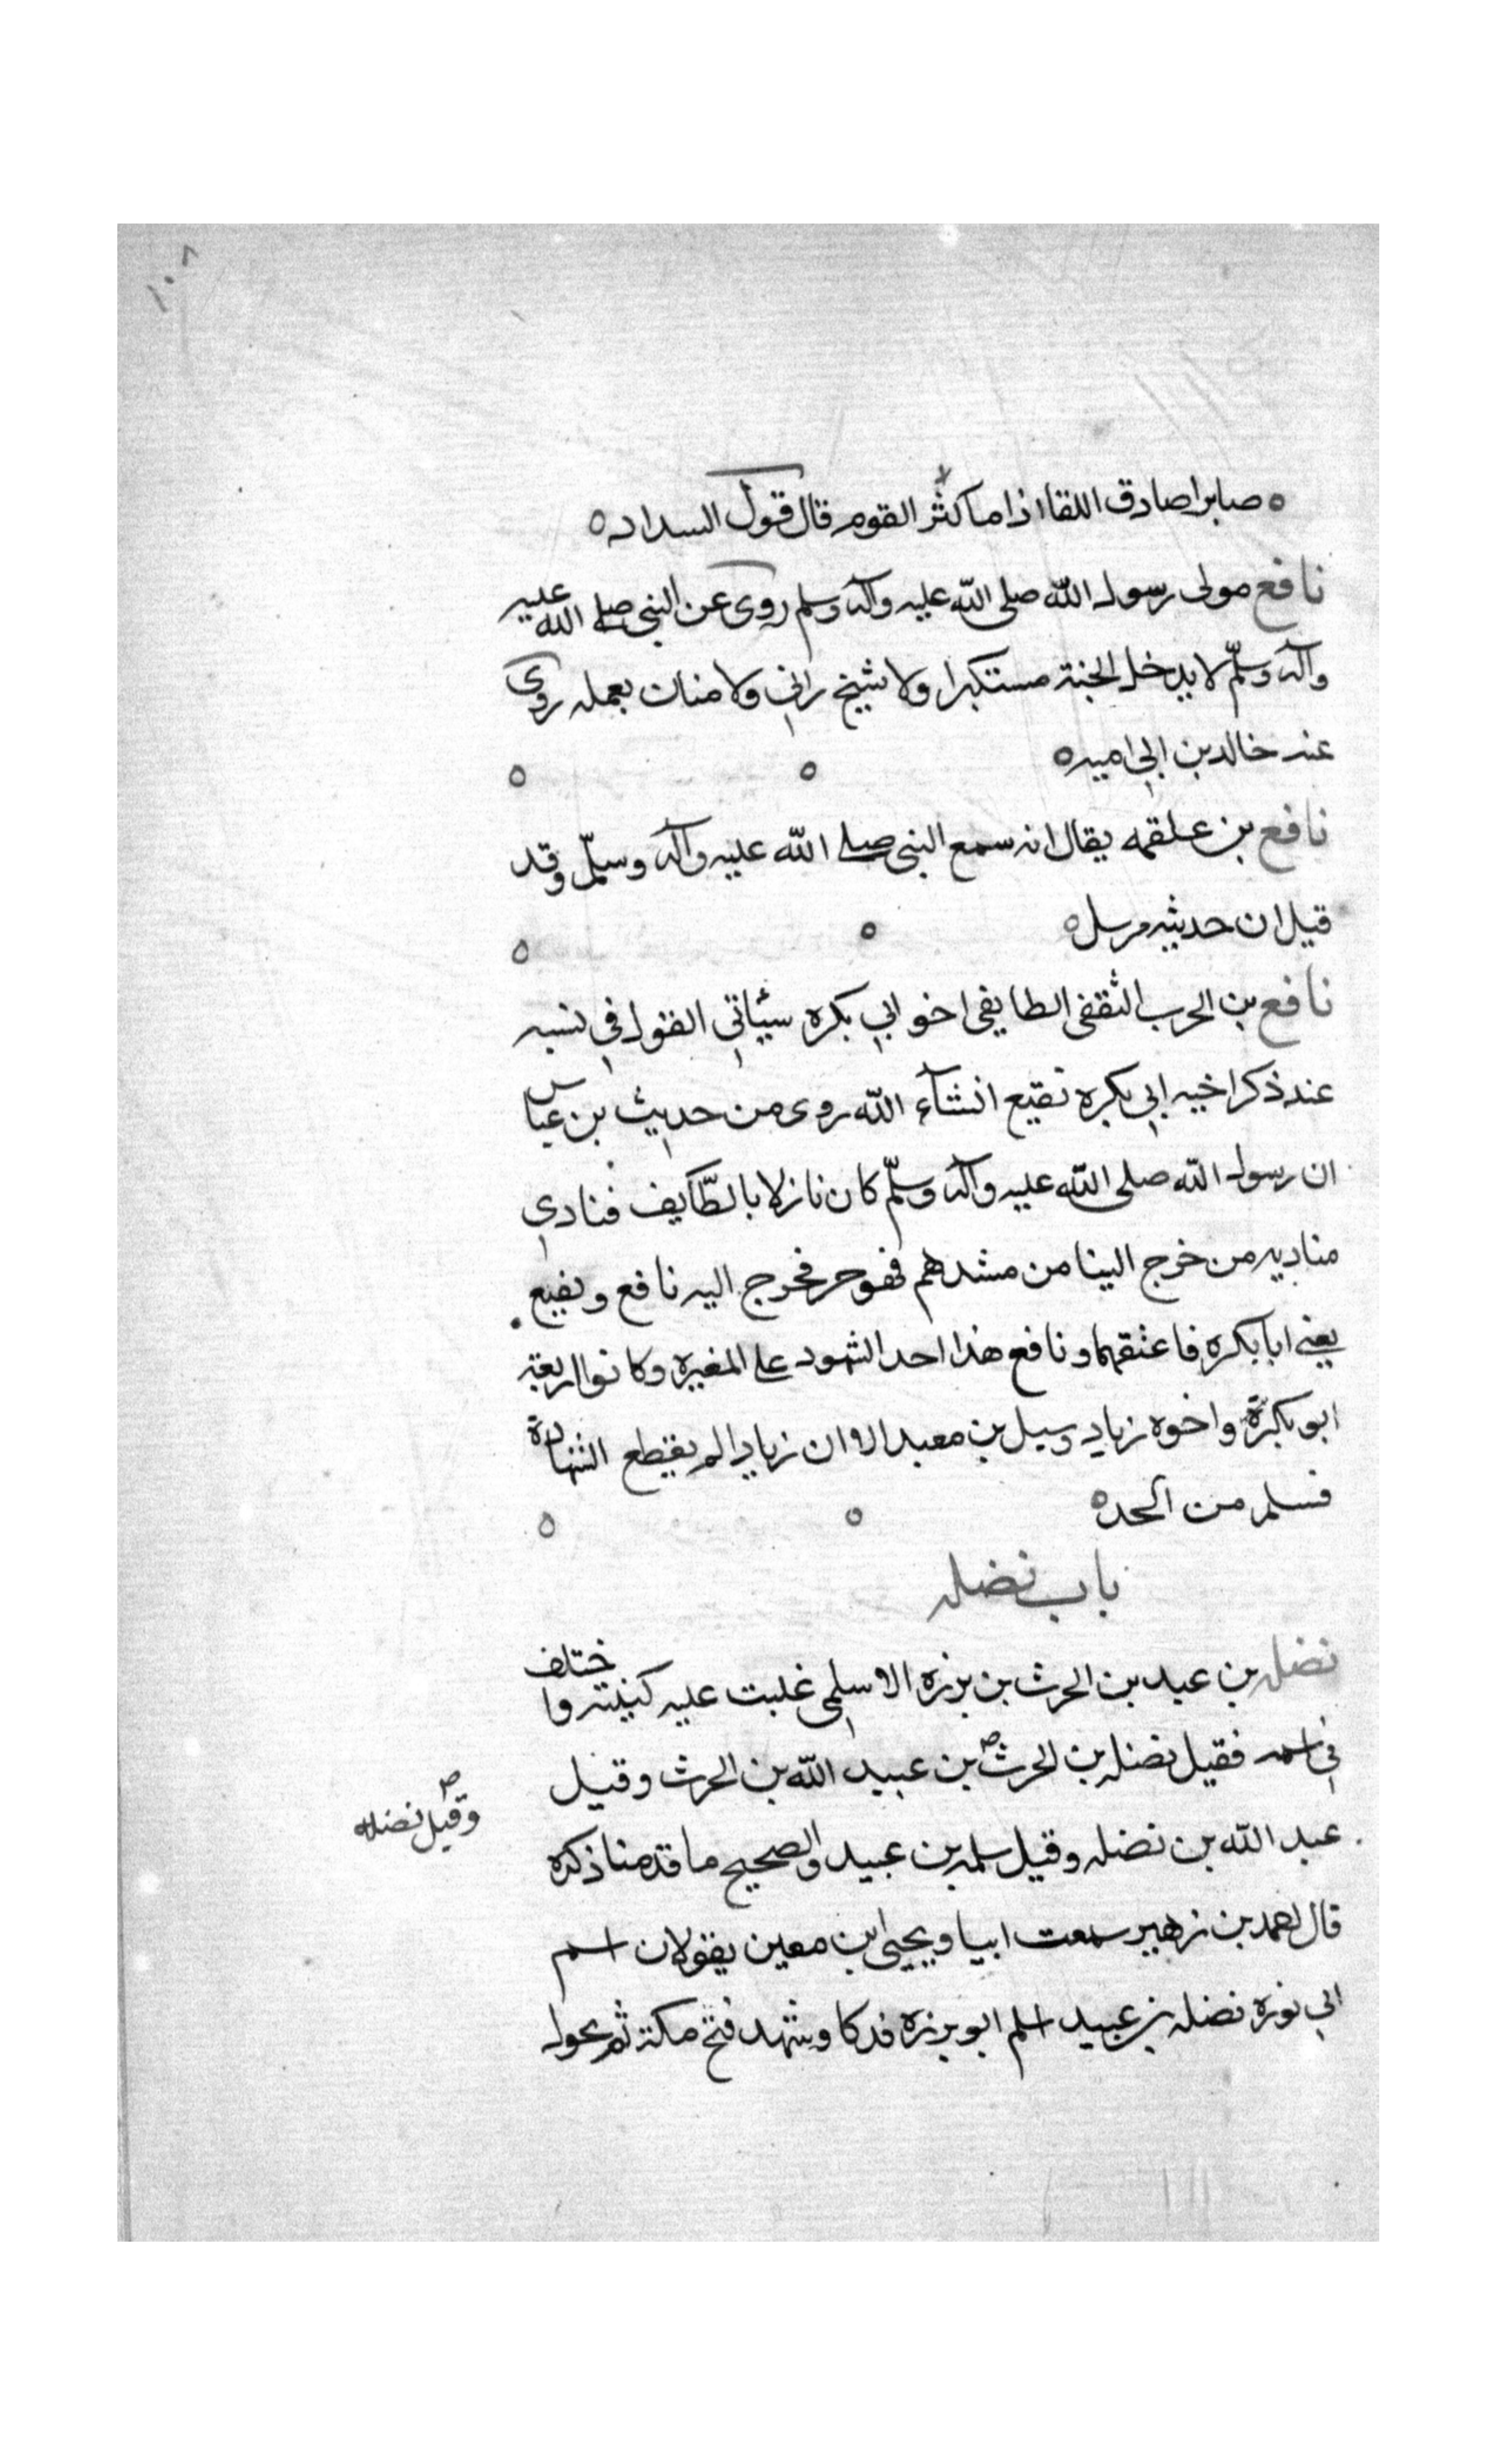 ١٠٨
ه صابرا صادق اللقا اذا ما اكثر القوم قال قول السداد ه
نافع مولى رسول الله صلى الله عليه وآله وسلم روى عن النبى صلى الله عليه
وآله وسلّم لا يدخل الجنة مستكبرا ولا شيخ زاني ولا منان بعمله روى
عنه خالد بن ابي اميه ه ه ه
نافع بن علقمه يقال انه سمع النبى صلى الله عليه وآله وسلّم وقد
قيل ان حديثه مرسل ه ه ه
نافع بن الحرب الثقفى الطايفى اخو ابي بكره سيئاتي القول في نسبه
عند ذكر اخيه ابي بكره نقيع انشآء الله روى من حديث بن عباس
ان رسول الله صلى الله عليه وآله وسلّم كان نازلا بالطّآيف فنادى
مناديه من خرج الينا من مشدهم فهو حر فخرج اليه نافع ونفيع
يعني ابا بكره فاعتقهما ونافع هذا احد الشهود على المغيره وكانوا اربعة
ابو بكرة واخوه زياد وسيل بن معبد الا ان زيادا لم يقطع الشهادة
فسلم من الحد ه ه ه
باب نضله
نضله بن عبيد بن الحرث بن برزه الاسلمى غلبت عليه كنيته واختلف
في اسمه فقيل نضله بن الحرث بن عبيد الله بن الحرث وقيل
وقيل نضله
عبد الله بن نضله وقيل سلمه بن عبيد والصحيح ما قدمنا ذكره
قال احمد بن زهير سمعت ابيا ويحيى ابن معين يقولان اسم
ابي برزه نضله بن عبيد اسلم ابو برزه قدكا وشهد فتح مكة ثم تحول